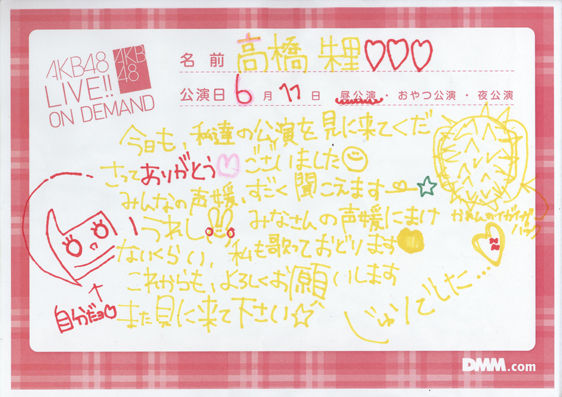 AKB48
LIVE!!
ON DEMAND
AKB
48
名前 高橋朱里♡♡♡
公演日 6月17日 昼公演・おやつ公演・夜公演
今日も、私達の公演を見に来てくだ
さってありがとう♡ございました☺
みんなの声援、すごく聞こえます☆
うれしい みなさんの声援にまけ
ないくらい、私も歌っておどります
これからも、よろしくお願いします
また見に来て下さい☆
自分だョ♡
じゅりでした…♡
DMM.com